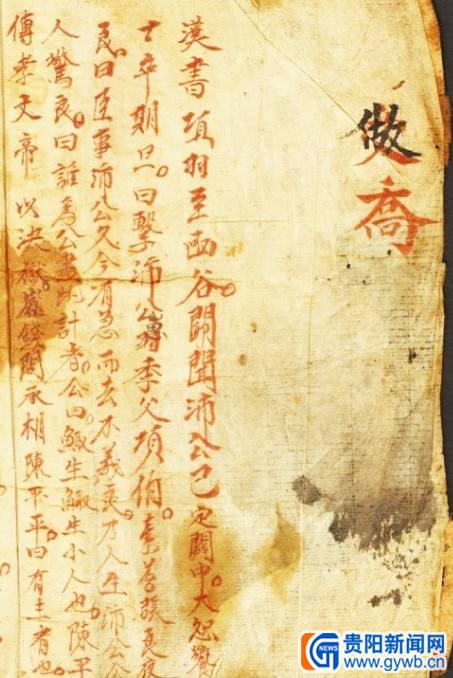 喬
漢書項羽至函谷。關聞沛公已定關中大怒饗
士卒期旦。曰擊沛公羽季父項伯。素善張良夜
良。曰臣事沛公久今有急而去不義良乃入沛公公
人驚良。曰誰為公畫此計者。公曰。鯫生鯫生小人也。陳平
傳孝文帝以決獄。錢問承相陳平。平曰有主者也。
贵阳新闻网
www.gywb.cn